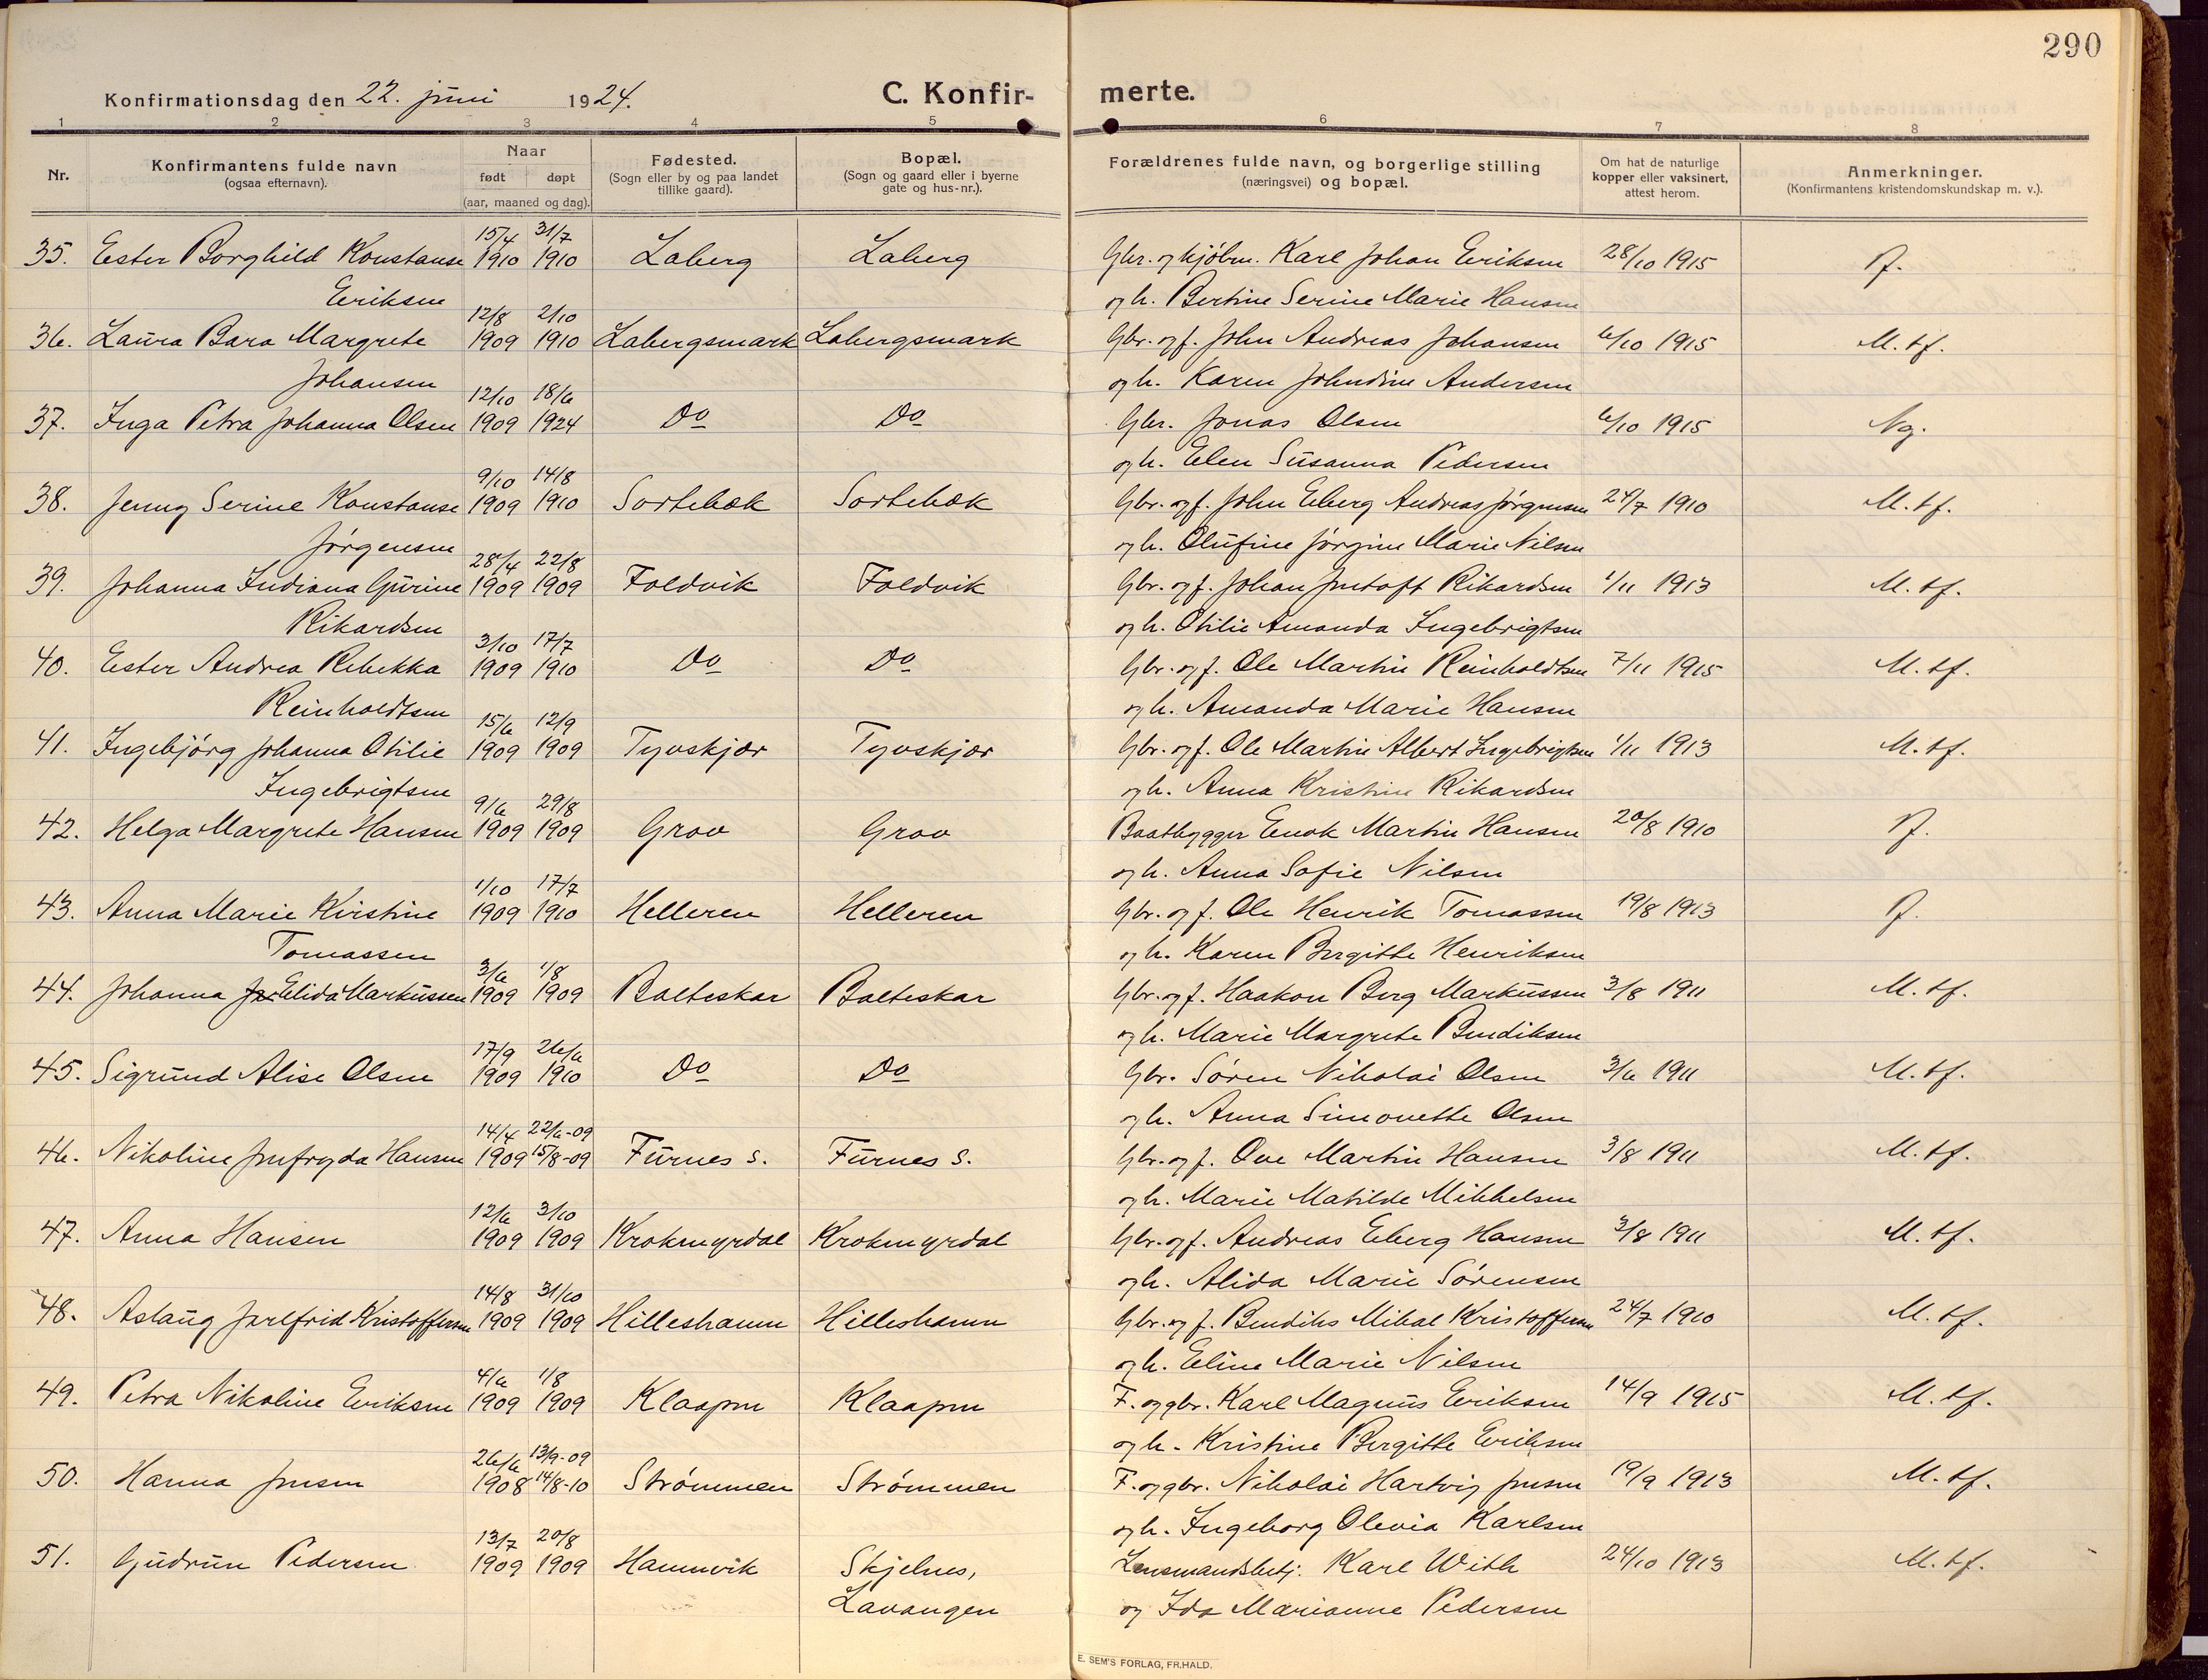 290
Konfirmationsdag den 22. juni 1924.
C. Konfir-
merte.
1 2 3 4 5 6 7 8
Nr.
Konfirmantens fulde navn
(ogsaa efternavn).
Naar
født døpt
(aar, maaned og dag).
Fødested.
(Sogn eller by og paa landet
tillike gaard).
Bopæl.
(Sogn og gaard eller i byerne
gate og hus-nr.).
Forældrenes fulde navn, og borgerlige stilling
(næringsvei) og bopæl.
Om hat de naturlige
kopper eller vaksinert,
attest herom.
Anmerkninger.
(Konfirmantens kristendomskundskap m. v.).
15/4 31/7
35. Ester Borghild Konstanse 1910 1910 Laberg Laberg Gbr. og kjøbm. Karl Johan Eriksen 28/10 1915
Eriksen og h. Bertine Serine Marie Hansen
12/8 2/10
36. Laura Bara Margrete 1909 1910 Labergsmark Labergsmark Gbr. og f. John Andreas Johansen 6/10 1915 M. tf.
Johansen og h. Karen Johndine Andersen
12/10 18/6
37. Inga Petra Johanna Olsen 1909 1924 Do Do Gbr. Jonas Olsen 6/10 1915 Ng.
og h. Elen Susanna Pedersen
9/10 14/8
38. Jenny Serine Konstanse 1909 1910 Sortebæk Sortebæk Gbr. og f. John Eberg Andreas Jørgensen 24/7 1910 M. tf.
Jørgensen og h. Olufine Jørgine Marie Nilsen
28/4 22/8
39. Johanna Indiana Gurine 1909 1909 Foldvik Foldvik Gbr. og f. Johan Jentoft Rikardsen 1/11 1913 M. tf.
Rikardsen og h. Otilie Amanda Ingebrigtsen
3/10 17/7
40. Ester Andrea Rebekka 1909 1910 Do Do Gbr. og f. Ole Martin Reinholdtsen 7/11 1915 M. tf.
Reinholdtsen og h. Amanda Marie Hansen
15/6 12/9
41. Ingebjørg Johanna Otilie 1909 1909 Tyvskjær Tyvskjær Gbr. og f. Ole Martin Albert Ingebrigtsen 1/11 1913 M. tf.
Ingebrigtsen og h. Anna Kristine Rikardsen
9/6 29/8
42. Helga Margrete Hansen 1909 1909 Grov Grov Baatbygger Enok Martin Hansen 20/8 1910
og h. Anna Sofie Nilsen
1/10 17/7
43. Anna Marie Kirstine 1909 1910 Helleren Helleren Gbr. og f. Ole Henrik Tomassen 19/8 1913
Tomassen og h. Karen Bergitte Henriksen
3/6 1/8
44. Johanna Elida Markussen 1909 1909 Balteskar Balteskar Gbr. og f. Haakon Berg Markussen 3/8 1911 M. tf.
og h. Marie Margrete Bendiksen
17/9 26/6
45. Sigrund Alise Olsen 1909 1910 Do Do Gbr. Søren Nikolai Olsen 3/6 1911 M. tf.
og h. Anna Simonette Olsen
14/4 22/6-09
46. Nikoline Jenfryda Hansen 1909 15/8-09 Furnes s. Furnes s. Gbr. og f. Ove Martin Hansen 3/8 1911 M. tf.
og h. Marie Matilde Mikkelsen
12/6 3/10
47. Anna Hansen 1909 1909 Krokmyrdal Krokmyrdal Gbr. og f. Andreas Eberg Hansen 3/8 1911 M. tf.
og h. Alida Marie Sørensen
14/8 31/10
48. Aslaug Jarlfrid Kristoffersen 1909 1909 Hilleshamn Hilleshamn Gbr. og f. Bendiks Mikal Kristoffersen 24/7 1910 M. tf.
og h. Eline Marie Nilsen
4/6 1/8
49. Petra Nikoline Eriksen 1909 1909 Klaapen Klaapen F. og gbr. Karl Magnus Eriksen 14/9 1915 M. tf.
og h. Kristine Bergitte Eriksen
26/6 13/9-09
50. Hanna Jensen 1908 14/8-10 Strømmen Strømmen F. og gbr. Nikolai Hartvig Jensen 19/9 1913 M. tf.
og h. Ingeborg Olevia Karlsen
13/7 20/8
51. Gudrun Pedersen 1909 1909 Hamnvik Skjelnes, Lensmandsbetj. Karl With 24/10 1913 M. tf.
Lavangen og Ida Marianne Pedersen
E. SEM'S FORLAG, FR.HALD.